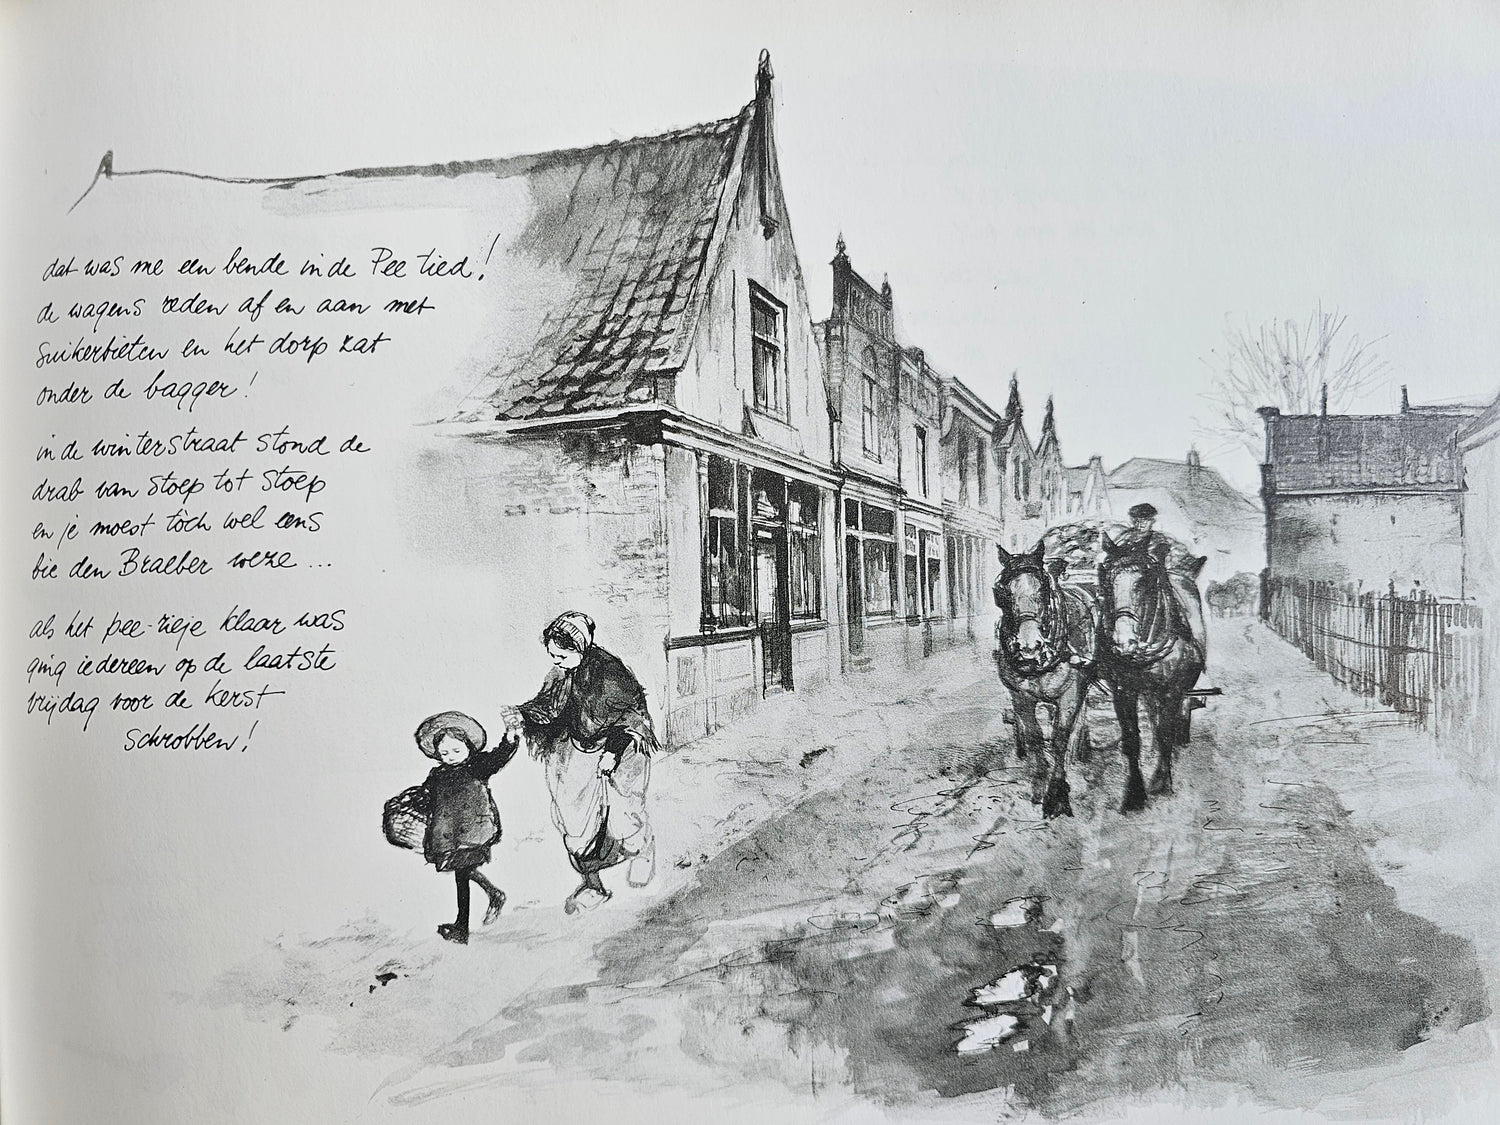 dat was me een bende in de Pee tied!
de wagens reden af en aan met
suikerbieten en het dorp zat
onder de bagger!
in de winterstraat stond de
drab van stoep tot stoep
en je moest tòch wel eens
bie den Braeber weze ...
als het pee-zieje klaar was
ging iedereen op de laatste
vrijdag voor de kerst
schrobben!